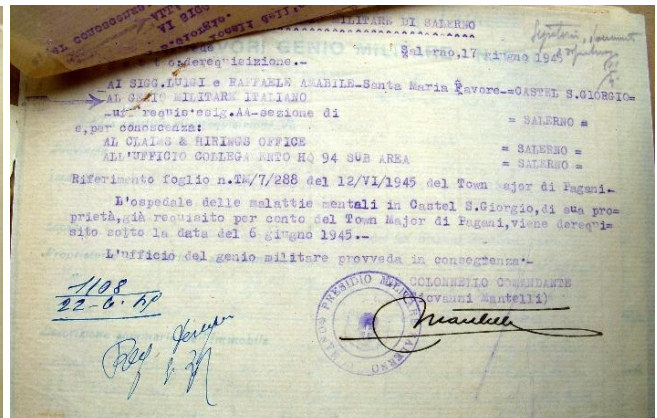 MILITARE DI SALERNO
Salerno, 17 giugno 1945
o:derequisizione.-
AI SIGG.LUIGI e RAFFAELE AMABILE-Santa Maria Favore-=CASTEL S.GIORGIO=
AL GENIO MILITARE ITALIANO
-uff.requis.esig.AA-sezione di = SALERNO =
e,per conoscenza:
AL CLAIMS & HIRINGS OFFICE = SALERNO =
ALL'UFFICIO COLLEGAMENTO HQ 94 SUB AREA = SALERNO =
Riferimento foglio n.TM/7/288 del 12/VI/1945 del Town Major di Pagani.-
L'ospedale delle malattie mentali in Castel S.Giorgio,di sua pro=
prietà,già requisito per conto del Town Major di Pagani,viene derequi=
sito sotto la data del 6 giugno 1945.-
L'ufficio del genio militare provveda in conseguenza.-
COLONNELLO COMANDANTE
(Giovanni Mantelli)
Mantelli
1108
22-6-45
PRESIDIO MILITARE SALERNO